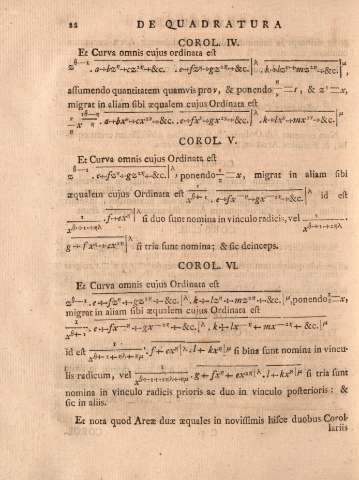 22 DE QUADRATURA
COROL. IV.
Et Curva omnis cujus ordinata est
z^{θ-1}. a+bz^η+cz^{2η}+&c. . e+fz^η+gz^{2η}+&c.|^λ . k+lz^η+mz^{2η}+&c.|^μ,
assumendo quantitatem quamvis pro ν, & ponendo η/ν=s, & z^s=x,
migrat in aliam sibi æqualem cujus Ordinata est
a+bx^ν+cx^{2ν}+&c. . e+fx^ν+gx^{2ν}+&c.|^λ . k+lx^ν+mx^{2ν}+&c.|^μ
COROL. V.
Et Curva omnis cujus Ordinata est
z^{θ-1} . e+fz^η+gz^{2η}+&c.|^λ, ponendo 1/z=x, migrat in aliam sibi
æqualem cujus Ordinata est 1/x^{θ+1} . e+fx^{-η}+gx^{-2η}+&c.|^λ id est
1/x^{θ+1+ηλ} . f+ex^η|^λ si duo sunt nomina in vinculo radicis, vel 1/x^{θ+1+2ηλ}
g+fx^η+ex^{2η}|^λ si tria sunt nomina; & sic deinceps.
COROL. VI.
Et Curva omnis cujus Ordinata est
z^{θ-1} . e+fz^η+gz^{2η}+&c.|^λ . k+lz^η+mz^{2η}+&c.|^μ, ponendo 1/z=x,
migrat in aliam sibi æqualem cujus Ordinata est
1/x^{θ+1} . e+fx^{-η}+gx^{-2η}+&c.|^λ . k+lx^{-η}+mx^{-2η}+&c.|^μ
id est 1/x^{θ+1+ηλ+ημ} . f+ex^η|^λ . l+kx^η|^μ si bina sunt nomina in vincu-
lis radicum, vel 1/x^{θ+1+2ηλ+ημ} . g+fx^η+ex^{2η}|^λ . l+kx^η|^μ si tria sunt
nomina in vinculo radicis prioris ac duo in vinculo posterioris: &
sic in aliis.
Et nota quod Areæ duæ æquales in novissimis hisce duobus Corol-
lariis